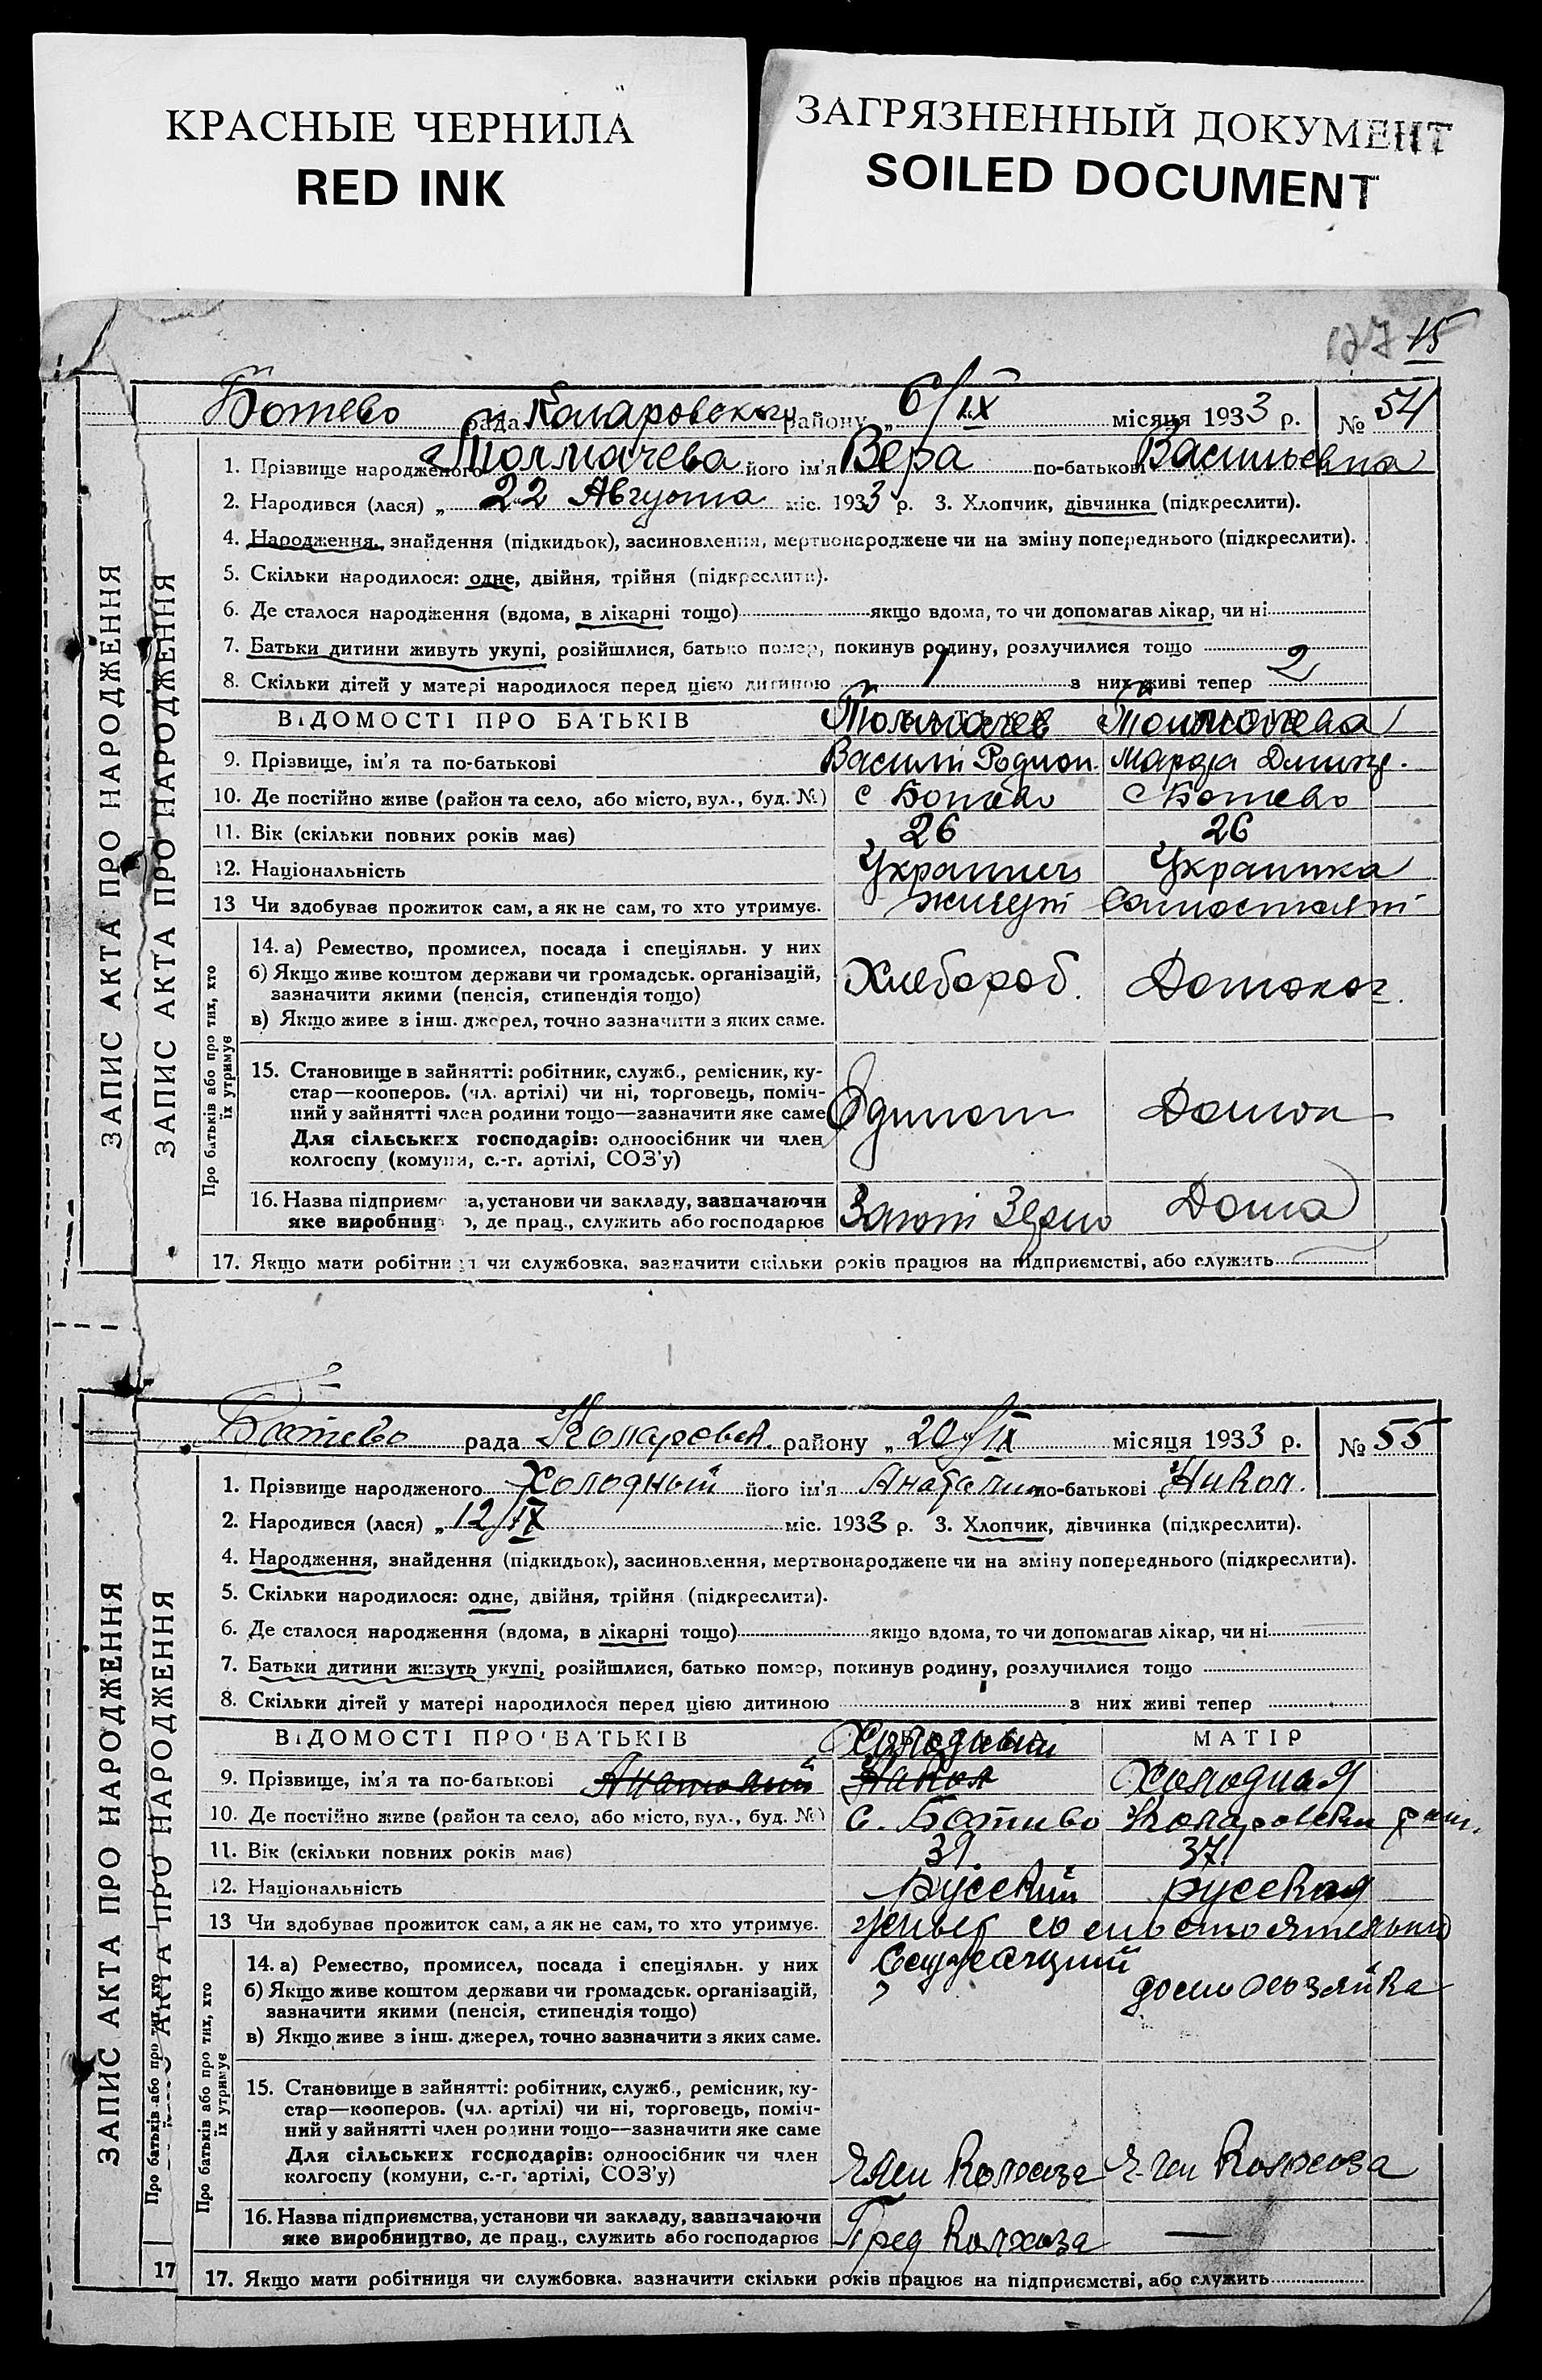 КРАСНЫЕ ЧЕРНИЛА
RED INK
ЗАГРЯЗНЕННЫЙ ДОКУМЕНТ
SOILED DOCUMENT
15
ЗАПИС АКТА ПРО НАРОДЖЕННЯ
ЗАПИС АКТА ПРО НАРОДЖЕННЯ
Ботево рада Коларовского району „ 6/IX місяця 1933 р. № 54
1. Прізвище народженого Толмачева його ім'я Вера по-батькові Васильевна
2. Народився (лася) „ 22 Августа міс. 1933 р. 3. Хлопчик, дівчинка (підкреслити).
4. Народження, знайдення (підкидьок), засиновлення, мертвонароджене чи на зміну попереднього (підкреслити).
5. Скільки народилося: одне, двійня, трійня (підкреслити).
6. Де сталося народження (вдома, в лікарні тощо) якщо вдома, то чи допомагав лікар, чи ні
7. Батьки дитини живуть укупі, розійшлися, батько помер, покинув родину, розлучилися тощо
8. Скільки дітей у матері народилося перед цією дитиною 1 з них живі тепер 2
ВІДОМОСТІ ПРО БАТЬКІВ Толмачев Толмачева
9. Прізвище, ім'я та по-батькові Василий Родион. Марфа
10. Де постійно живе (район та село, або місто, вул., буд. №) с Ботево с Ботево
11. Вік (скільки повних років має) 26 26
12. Національність Украинец Украинка
13 Чи здобуває прожиток сам, а як не сам, то хто утримує. живут
Про батьків або про тих, хто їх утримує
14. а) Ремество, промисел, посада і спеціяльн. у них
б) Якщо живе коштом держави чи громадськ. організацій,
зазначити якими (пенсія, стипендія тощо) Хлебороб.
в) Якщо живе з інш. джерел, точно зазначити з яких саме.
15. Становище в зайнятті: робітник, служб., ремісник, ку-
стар—кооперов. (чл. артілі) чи ні, торговець, поміч-
ний у зайнятті член родини тощо—зазначити яке саме
Для сільських господарів: одноосібник чи член
колгоспу (комуни, с.-г. артілі, СОЗ'у)
16. Назва підприємс а, установи чи закладу, зазначаючи
яке виробниц о, де прац., служить або господарює Дома
17. Якщо мати робітниця чи службовка, зазначити скільки років працює на підприємстві, або служить
ЗАПИС АКТА ПРО НАРОДЖЕННЯ
ЗАПИС АКТА ПРО НАРОДЖЕННЯ
Ботево рада Коларовск. району „ 20/IX місяця 1933 р. № 55
1. Прізвище народженого Холодный його ім'я Анатолий по-батькові Никол.
2. Народився (лася) „ 12/IX міс. 1933 р. 3. Хлопчик, дівчинка (підкреслити).
4. Народження, знайдення (підкидьок), засиновлення, мертвонароджене чи на зміну попереднього (підкреслити).
5. Скільки народилося: одне, двійня, трійня (підкреслити).
6. Де сталося народження (вдома, в лікарні тощо) якщо вдома, то чи допомагав лікар, чи ні
7. Батьки дитини живуть укупі, розійшлися, батько помер, покинув родину, розлучилися тощо
8. Скільки дітей у матері народилося перед цією дитиною з них живі тепер
ВІДОМОСТІ ПРО БАТЬКІВ Холодный МАТІР
9. Прізвище, ім'я та по-батькові Анатолий Никол Холодная
10. Де постійно живе (район та село, або місто, вул., буд. №) с. Ботиво Коларовский
11. Вік (скільки повних років має) 39. 37.
12. Національність русский русская
13 Чи здобуває прожиток сам, а як не сам, то хто утримує. живет самостоятельно
Про батьків або про тих, хто
Про батьків або про тих, хто їх утримує
14. а) Ремество, промисел, посада і спеціяльн. у них Служащий
б) Якщо живе коштом держави чи громадськ. організацій, домохозяйка
зазначити якими (пенсія, стипендія тощо)
в) Якщо живе з інш. джерел, точно зазначити з яких саме.
15. Становище в зайнятті: робітник, служб., ремісник, ку-
стар—кооперов. (чл. артілі) чи ні, торговець, поміч-
ний у зайнятті член родини тощо—зазначити яке саме
Для сільських господарів: одноосібник чи член
колгоспу (комуни, с.-г. артілі, СОЗ'у) Член колхоза Член колхоза
16. Назва підприємства, установи чи закладу, зазначаючи
яке виробництво, де прац., служить або господарює Пред колхоза —
17
17. Якщо мати робітниця чи службовка, зазначити скільки років працює на підприємстві, або служить